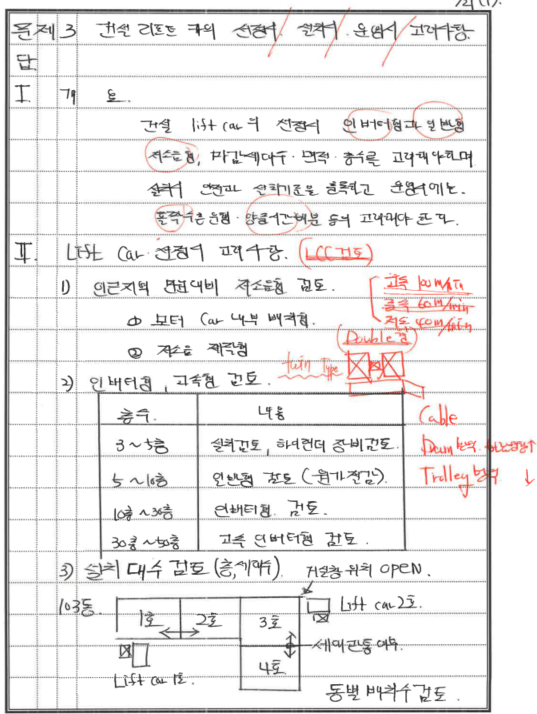 문제 3 건설 리프트 카의 선정시, 설치시, 운영시 고려사항.
답
I. 개요.
건설 lift car의 선정시 인버터형과 일반형
저소음형, 마감세대수·면적·층수를 고려해야하며
설치시 안전과 설치기준을 준수하고 운영시에는
출퇴근운행·양중시간배분 등의 고려해야 한다.
II. Lift Car 선정시 고려사항. (LCC 검토)
1) 인근지역 민원대비 저소음형 검토.
고속 100m/min
중속 60m/min
저속 40m/min
① 모터 Car 내부 배치형.
② 저소음 제작형
Double형
twin Type
2) 인버터형, 고속형 검토.
층수. 내용
3~5층 설치검토, 하이랜더 장비검토.
5~10층 일반형 검토 (원가절감).
10층~30층 인버터형 검토.
30층~50층 고속 인버터형 검토.
Cable
Drum방식
Trolley방식 ↓
3) 설치 대수 검토 (층,세대수). 거실창 위치 OPEN.
103동. 1호 2호 3호 Lift car 2호.
4호 세대관통여부.
Lift car 1호.
동별 배치수 검토.